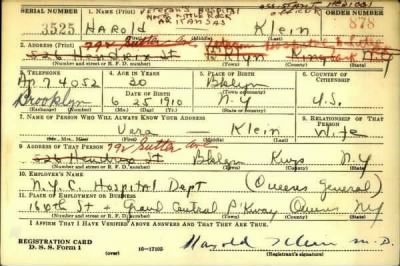 SERIAL NUMBER 1. NAME (Print) VETERANS HOSPITAL ORDER NUMBER
NORTH LITTLE ROCK
ARKANSAS
3525 HAROLD Klein 878
(First) (Middle) (Last)
2. ADDRESS (Print) 792 Sutter Ave
526 Hendrix St Bklyn Kings N.Y
(Number and street or R. F. D. number) (Town) (County) (State)
3. TELEPHONE 4. AGE IN YEARS 5. PLACE OF BIRTH 6. COUNTRY OF CITIZENSHIP
Ap. 7 4052 30 Bklyn
DATE OF BIRTH
Brooklyn 6 25 1910 N-Y U.S.
(Exchange) (Number) (Mo.) (Day) (Yr.) (State or country)
7. NAME OF PERSON WHO WILL ALWAYS KNOW YOUR ADDRESS 8. RELATIONSHIP OF THAT PERSON
Vera — Klein Wife
(Mr., Mrs., Miss) (First) (Middle) (Last)
9. ADDRESS OF THAT PERSON 792 Sutter Ave
526 Hendrix St Bklyn Kings N.Y
(Number and street or R. F. D. number) (Town) (County) (State)
10. EMPLOYER'S NAME
N.Y.C. Hospital Dept (Queens General)
11. PLACE OF EMPLOYMENT OR BUSINESS
St + Grand Central P'Kway Queens NY
(Number and street or R. F. D. number) (Town) (County) (State)
I AFFIRM THAT I HAVE VERIFIED ABOVE ANSWERS AND THAT THEY ARE TRUE.
REGISTRATION CARD
D. S. S. Form 1 (over) 16—17105 Harold Klein M.D.
(Registrant's signature)